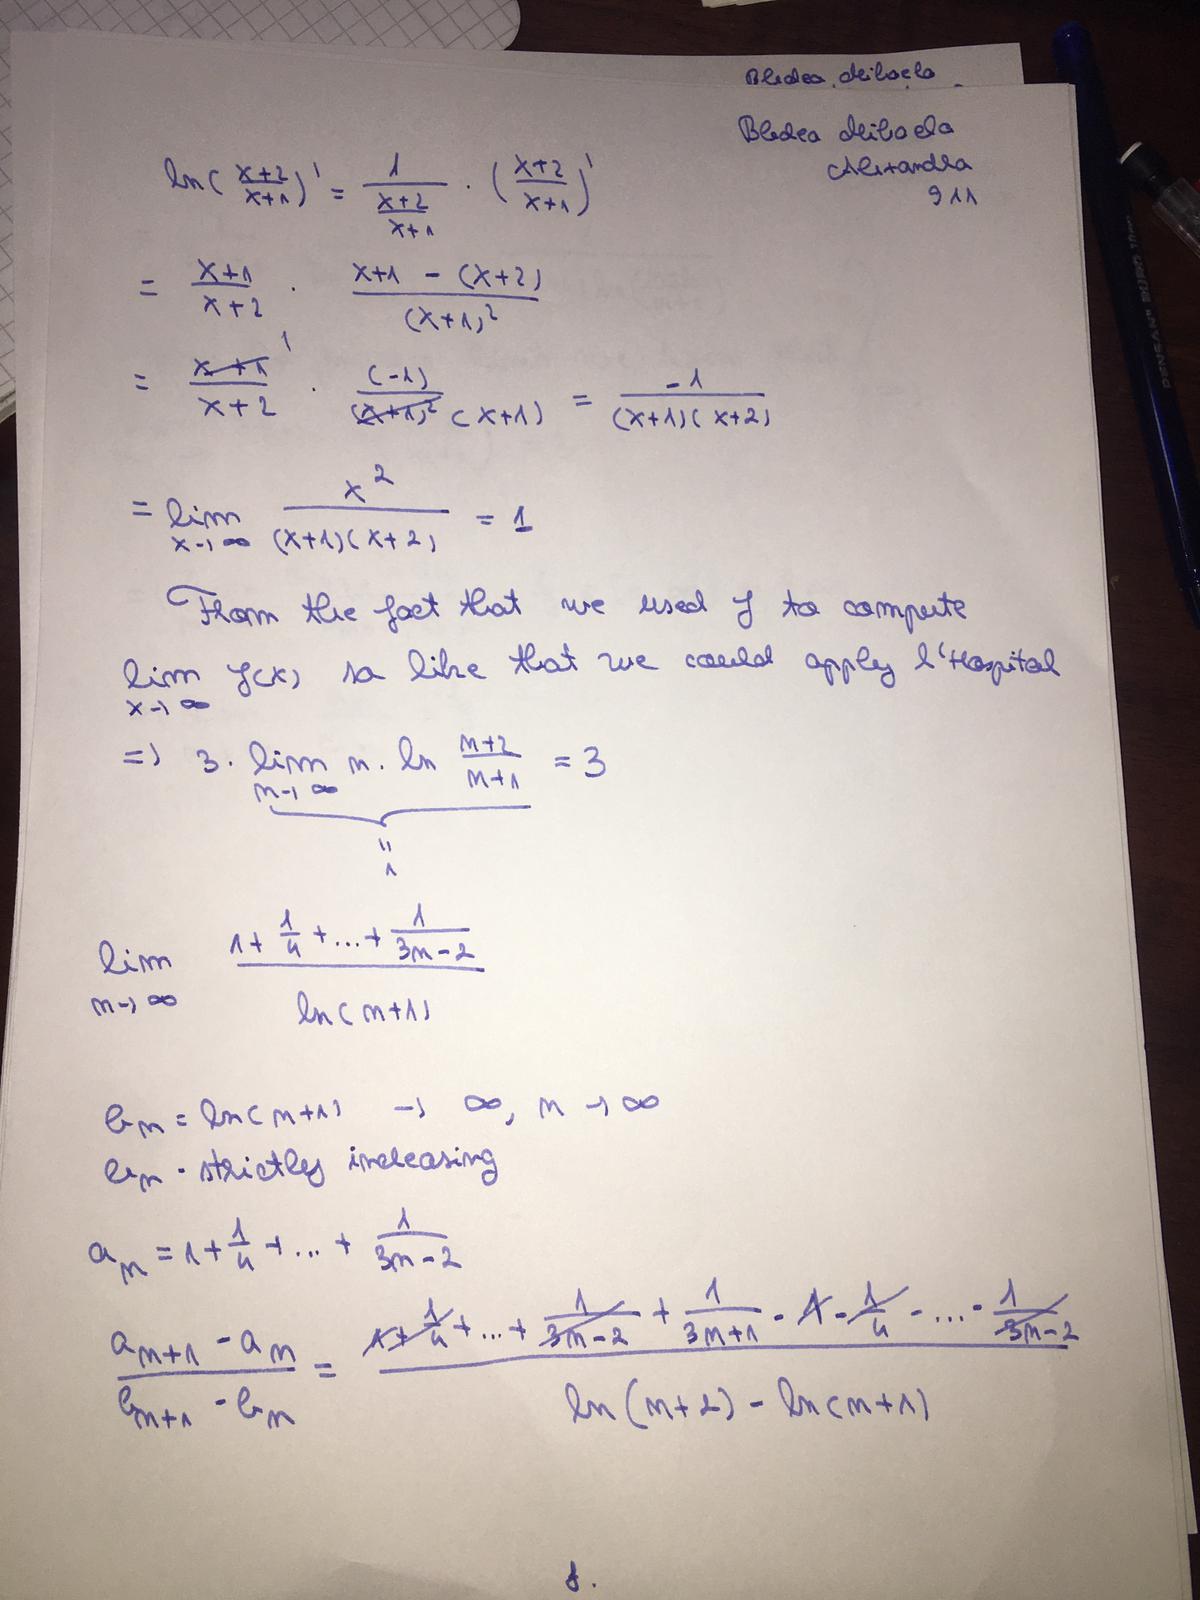 Bledea Mihaela
Bledea Mihaela
Alexandra
911
ln(\frac{x+2}{x+1})' = \frac{1}{\frac{x+2}{x+1}} · (\frac{x+2}{x+1})'
= \frac{x+1}{x+2} · \frac{x+1 - (x+2)}{(x+1)^2}
= \frac{x+1}{x+2} 1 · \frac{(-1)}{(x+1)^2 (x+1)} = \frac{-1}{(x+1)(x+2)}
= lim_{x→∞} \frac{x^2}{(x+1)(x+2)} = 1
From the fact that we used f to compute
lim_{x→∞} f(x), so like that we could apply l'Hospital
=> 3 · lim_{n→∞} n · ln \frac{n+2}{n+1} = 3
"
1
lim_{n→∞} \frac{1 + \frac{1}{4} + ... + \frac{1}{3n-2}}{ln(n+1)}
b_n = ln(n+1) → ∞, n → ∞
b_n - strictly increasing
a_n = 1 + \frac{1}{4} + ... + \frac{1}{3n-2}
\frac{a_{n+1} - a_n}{b_{n+1} - b_n} = \frac{1 + \frac{1}{4} + ... + \frac{1}{3n-2} + \frac{1}{3n+1} - 1 - \frac{1}{4} - ... - \frac{1}{3n-2}}{ln(n+2) - ln(n+1)}